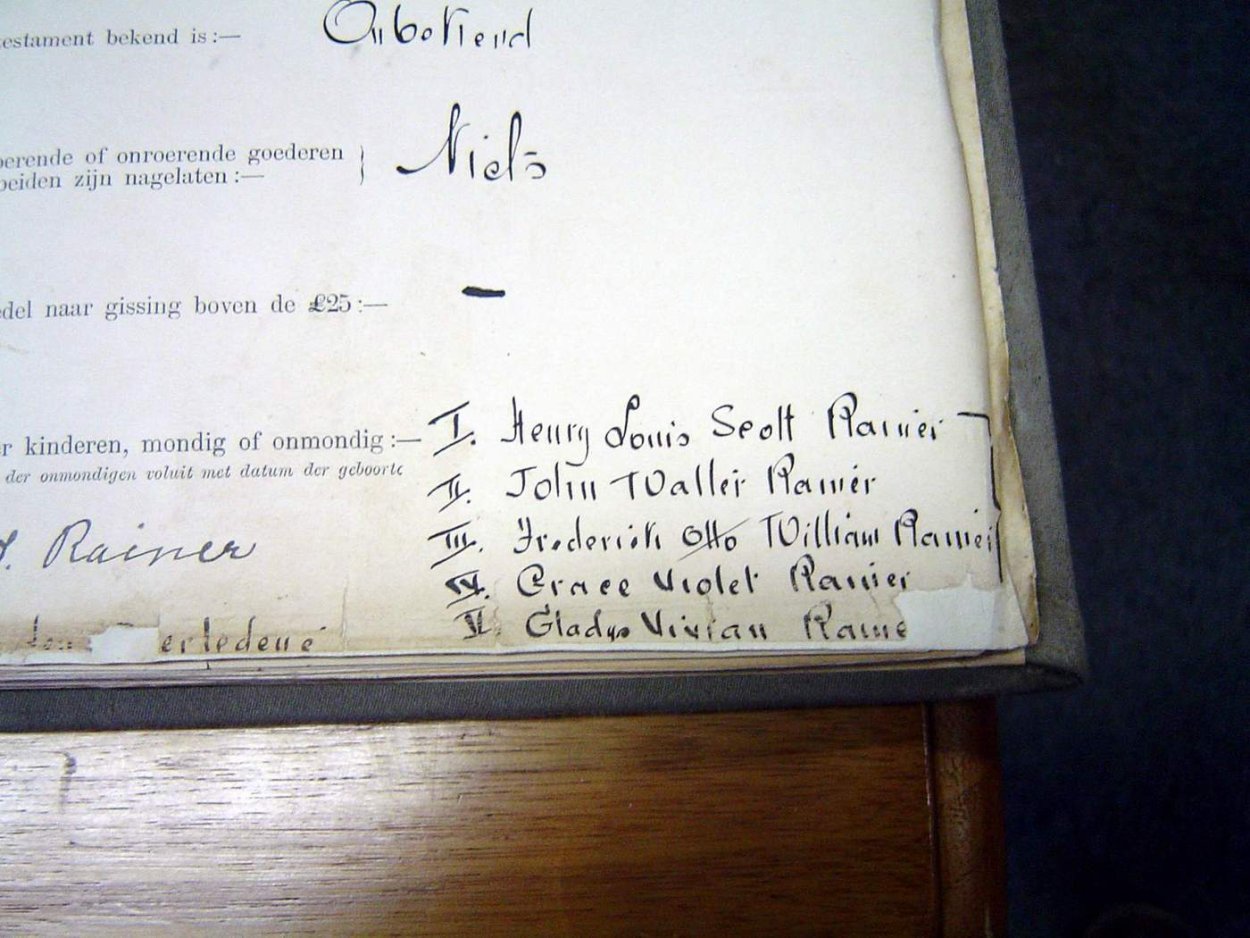 testament bekend is:— Onbekend
oerende of onroerende goederen } Niets
beiden zijn nagelaten:—
edel naar gissing boven de £25:— —
er kinderen, mondig of onmondig:— I. Henry Louis Scott Rainier
der onmondigen voluit met datum der geboorte
II. John Waller Rainier
III. Frederick Otto William Rainier
Rainer
IV. Grace Violet Rainier
V. Gladys Vivian Raine
erledene